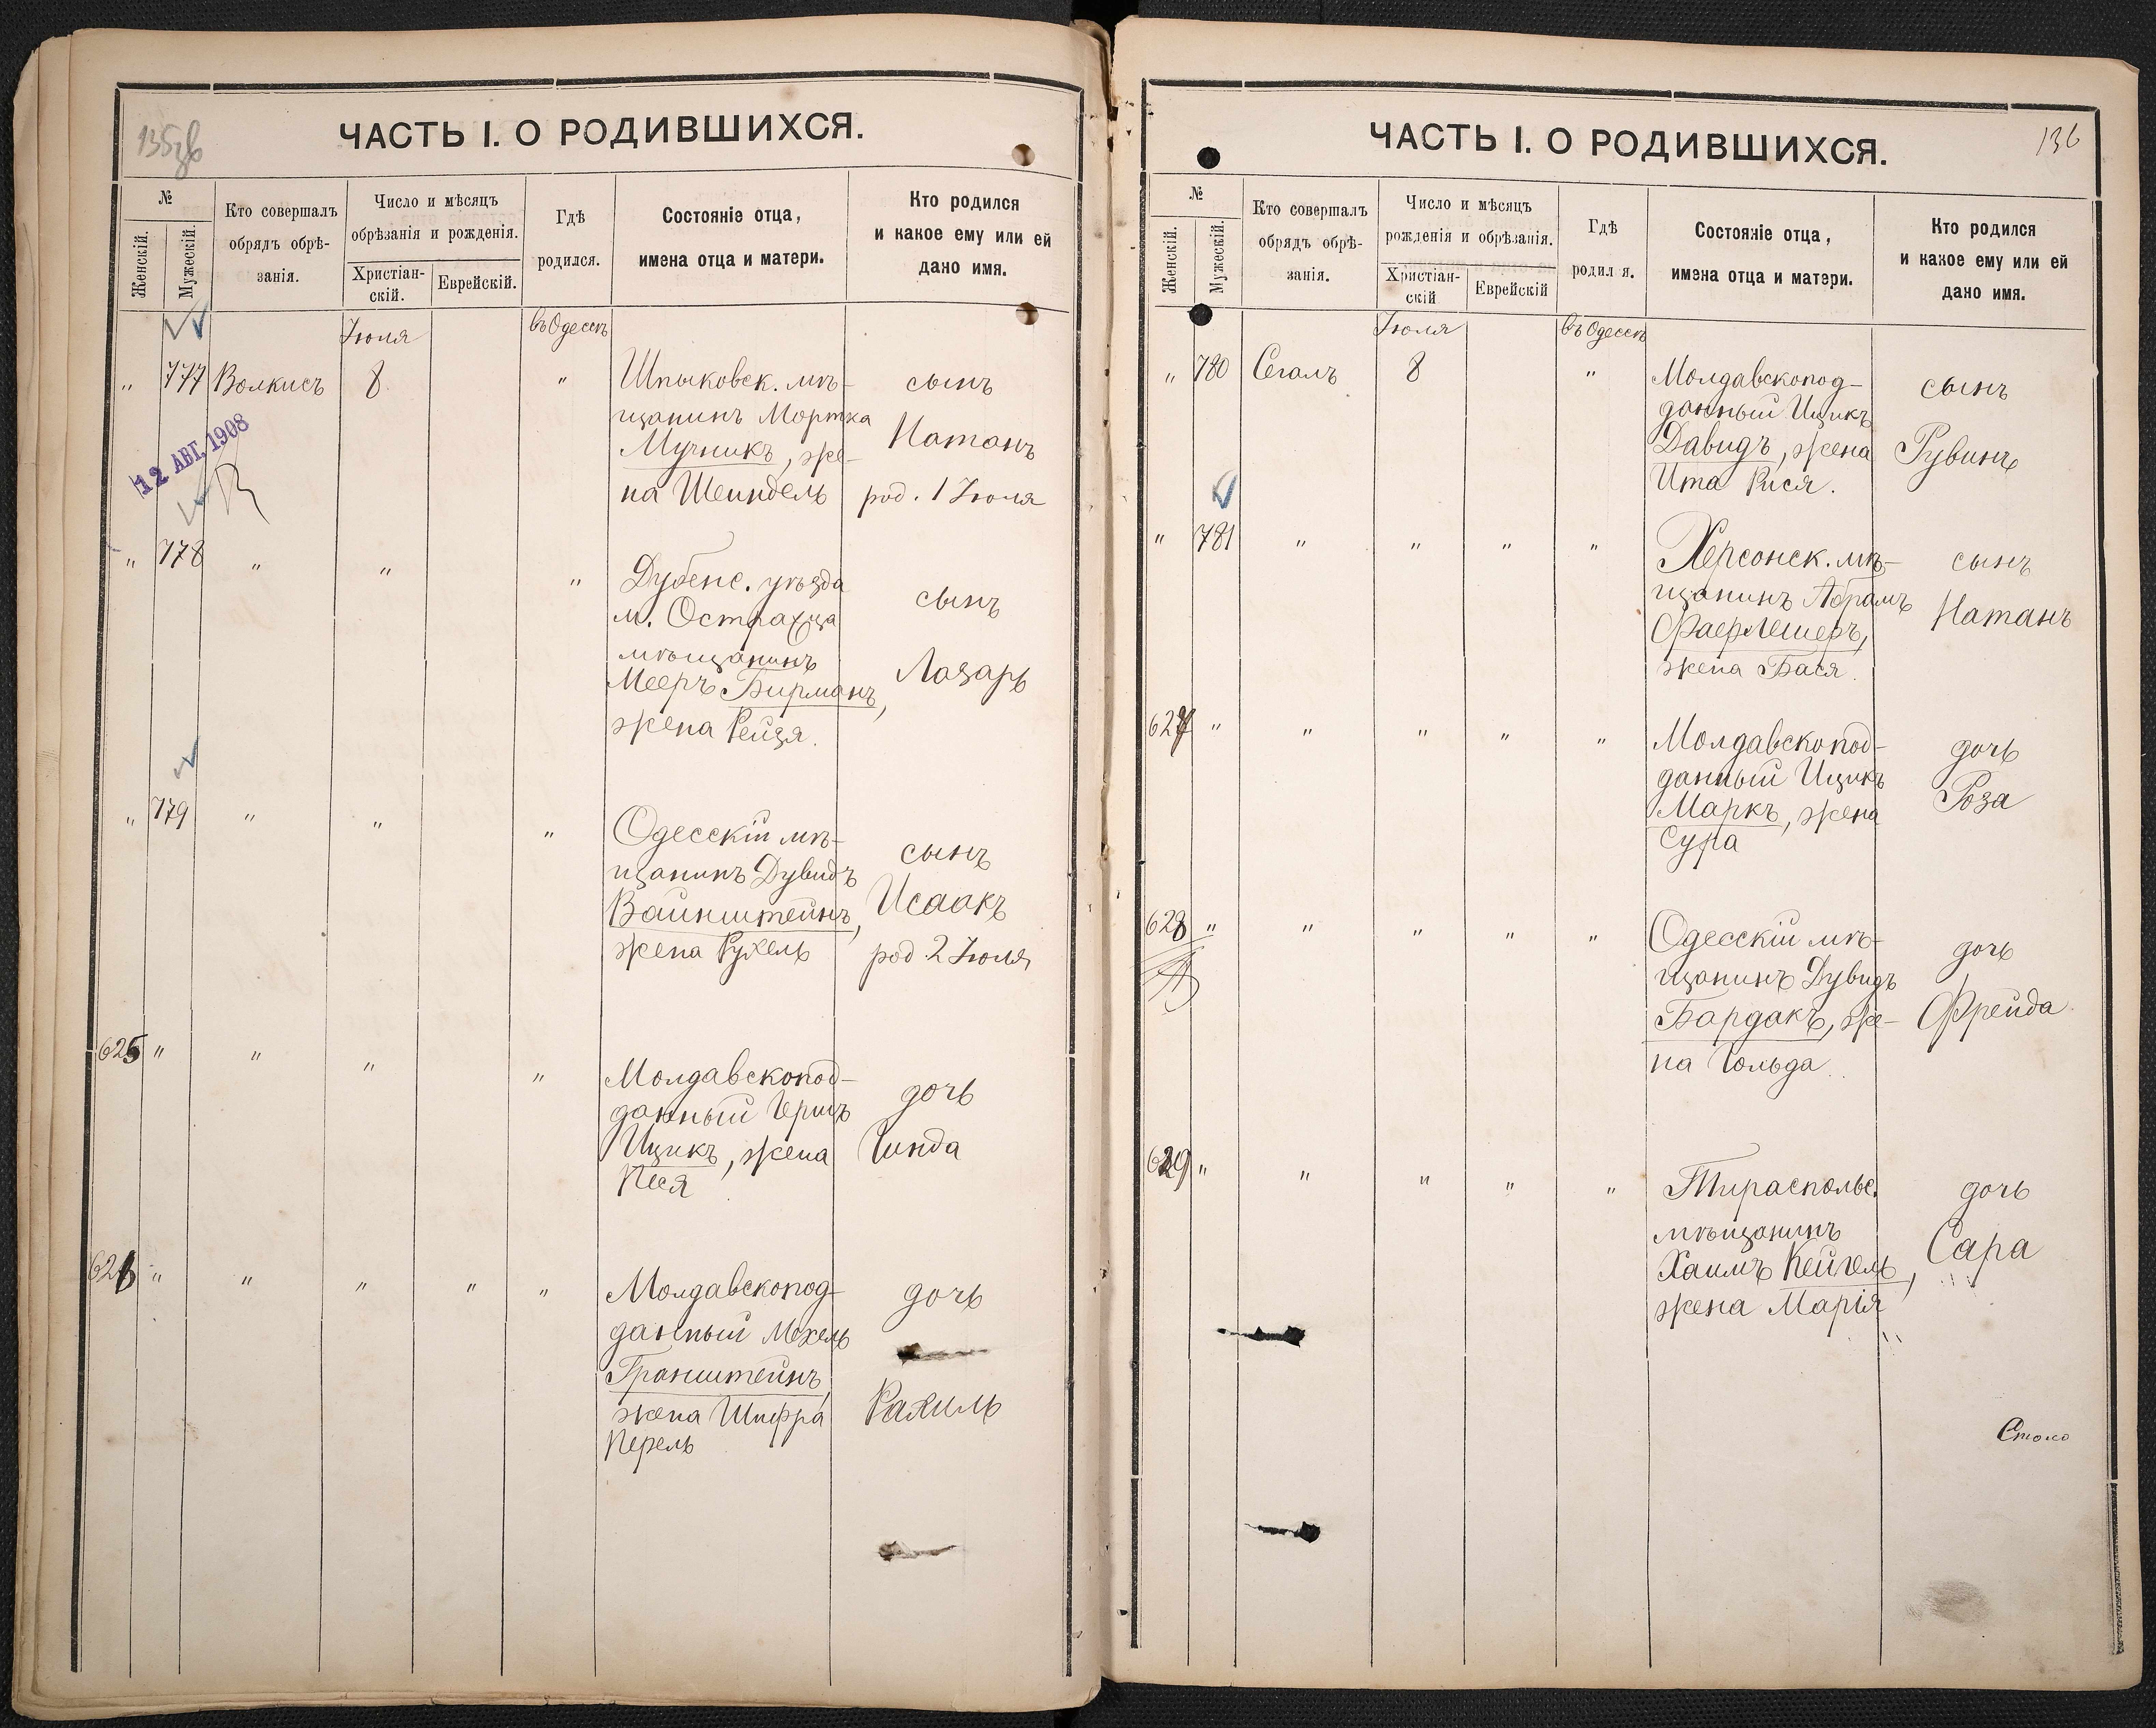 135об
ЧАСТЬ I. О РОДИВШИХСЯ.
№
Женскій.
Мужескій.
Кто совершалъ
обрядъ обрѣ-
занія.
Число и мѣсяцъ
обрѣзанія и рожденія.
Христіан-
скій.
Еврейскій.
Гдѣ
родился.
Состояніе отца,
имена отца и матери.
Кто родился
и какое ему или ей
дано имя.
Іюля
въ Одессѣ
" 777 Волкисъ 8 "
Шпыковск. мѣ-
щанинъ Мортка
Мучникъ, же-
на Шейндель
сынъ
Натанъ
род. 1 Іюля
12 АВГ. 1908
" 778 " " "
Дубенс. уѣзда
м.
мѣщанинъ
Мееръ Бирманъ,
жена Рейзя.
сынъ
Лазарь
" 779 " " "
Одесскій мѣ-
щанинъ Дувидъ
Вайнштейнъ,
жена Рухель
сынъ
Исаакъ
род. 2 Іюля
625 " " " "
Молдавскопод-
данный Гершъ
Ицикъ, жена
Песя
дочь
Гинда
626 " " " " "
Молдавскопод-
данный Мехель
Гранштейнъ,
жена Шифра
Перель
дочь
Рахиль
136
ЧАСТЬ I. О РОДИВШИХСЯ.
№
Женскій.
Мужескій.
Кто совершалъ
обрядъ обрѣ-
занія.
Число и мѣсяцъ
рожденія и обрѣзанія.
Христіан-
скій
Еврейскій
Гдѣ
родил я.
Состояніе отца,
имена отца и матери.
Кто родился
и какое ему или ей
дано имя.
Іюля
въ Одессѣ
" 780 Сегалъ 8 "
Молдавскопод-
данный Ицикъ
Давидъ, жена
Ита Рися.
сынъ
Рувинъ
" 781 " " " "
Херсонск. мѣ-
щанинъ Абрамъ
Фаерлешеръ,
жена Бася.
сынъ
Натанъ
627 " " " " "
Молдавскопод-
данный Ицикъ
Маркъ, жена
Сура
дочь
Роза
628 " " " " "
Одесскій мѣ-
щанинъ Дувидъ
Бардакъ, же-
на Гольда.
дочь
Фрейда
629 " " " " "
Тираспольс.
мѣщанинъ
Хаимъ Кейгель,
жена Марія
дочь
Сара